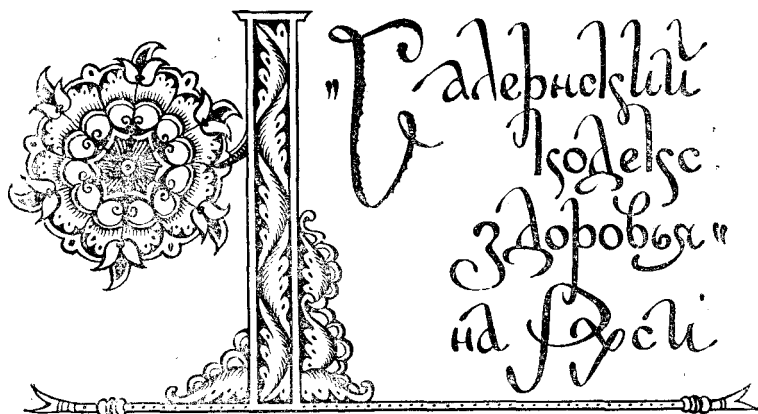 "Салернский
кодекс
здоровья"
на Руси